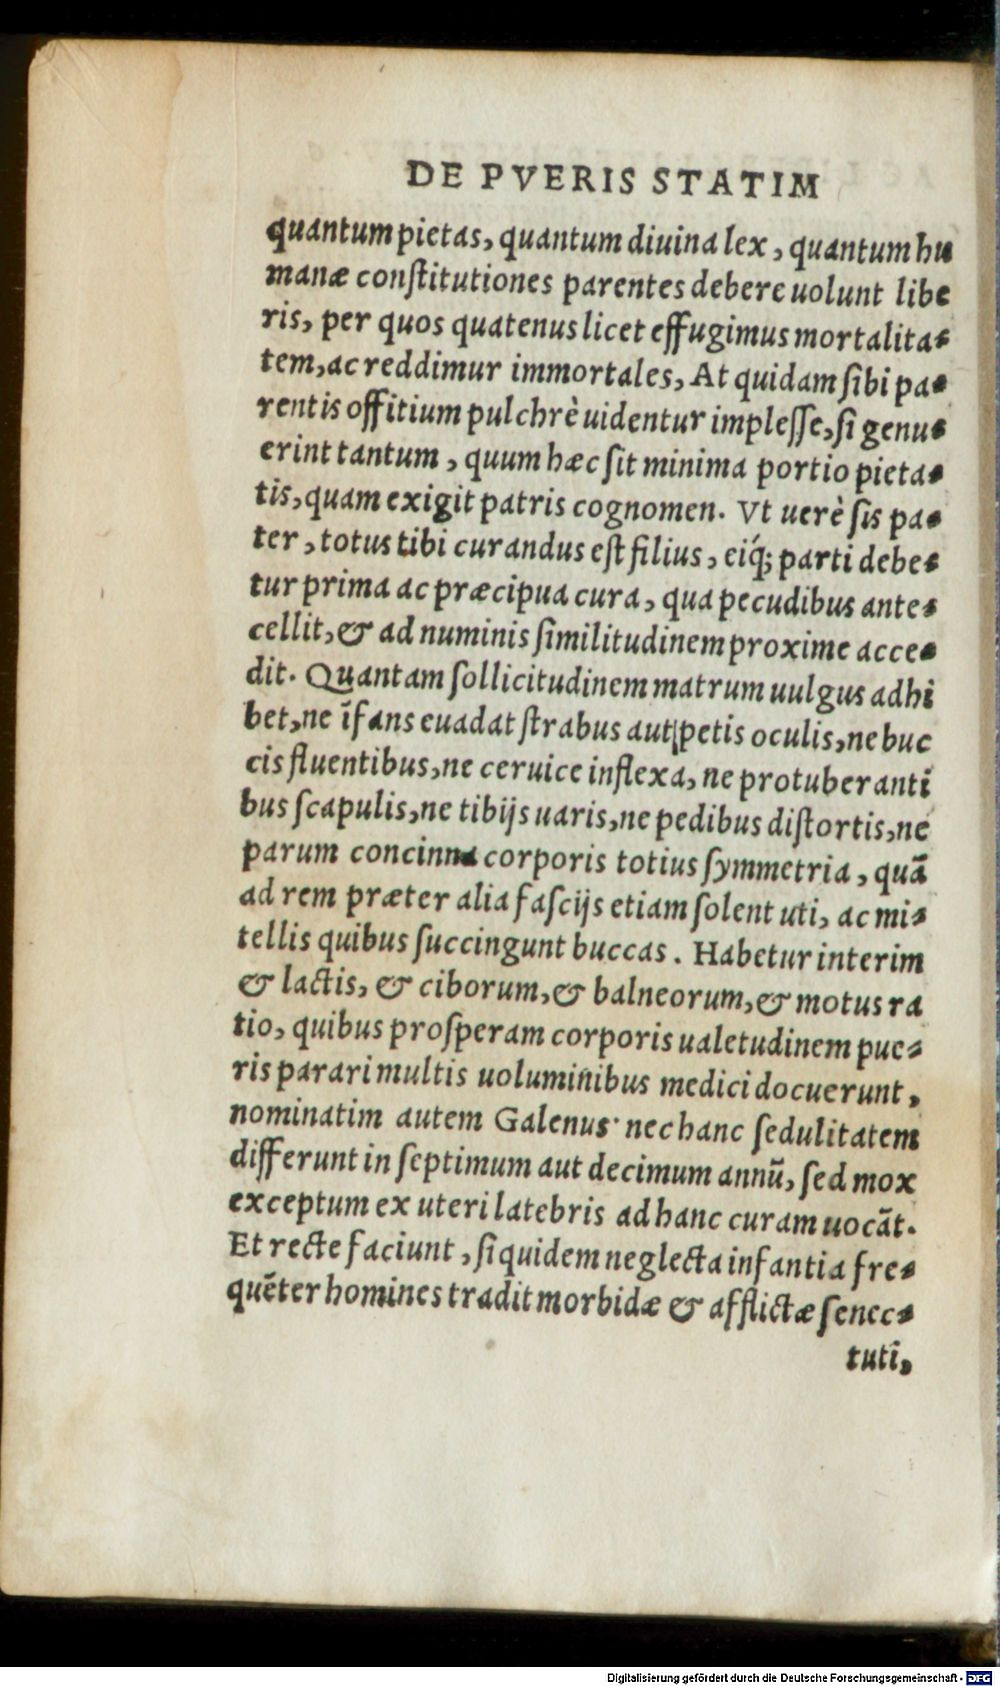 DE PVERIS STATIM
quantum pietas, quantum diuina lex, quantum hu
manæ conſtitutiones parentes debere uolunt libe
ris, per quos quatenus licet effugimus mortalita-
tem, ac reddimur immortales, At quidam ſibi pa-
rentis offitium pulchrè uidentur impleſſe, ſi genu-
erint tantum, quum hæc ſit minima portio pieta-
tis, quam exigit patris cognomen. Vt uerè ſis pa-
ter, totus tibi curandus eſt filius, eiq́; parti debe-
tur prima ac præcipua cura, qua pecudibus ante-
cellit, & ad numinis ſimilitudinem proxime acce-
dit. Quantam ſollicitudinem matrum uulgus adhi
bet, ne īfans euadat ſtrabus aut petis oculis, ne buc
cis fluentibus, ne ceruice inflexa, ne protuberanti
bus ſcapulis, ne tibijs uaris, ne pedibus diſtortis, ne
parum concinna corporis totius ſymmetria, quā
ad rem præter alia faſcijs etiam ſolent uti, ac mi-
tellis quibus ſuccingunt buccas. Habetur interim
& lactis, & ciborum, & balneorum, & motus ra
tio, quibus proſperam corporis ualetudinem pue-
ris parari multis uoluminibus medici docuerunt,
nominatim autem Galenus· nec hanc ſedulitatem
differunt in ſeptimum aut decimum annū, ſed mox
exceptum ex uteri latebris ad hanc curam uocāt.
Et recte faciunt, ſiquidem neglecta infantia fre-
quēter homines tradit morbidæ & afflictæ ſenec-
tuti,
Digitalisierung gefördert durch die Deutsche Forschungsgemeinschaft - DFG